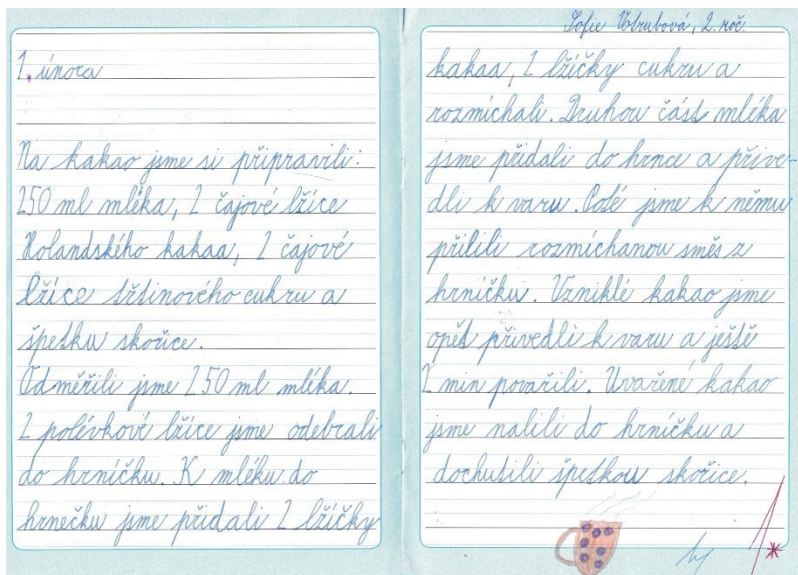 1. února
Na kakao jsme si připravili:
250 ml mléka, 2 čajové lžíce
Holandského kakaa, 2 čajové
lžíce třtinového cukru a
špetku skořice.
Odměřili jsme 250 ml mléka.
2 polévkové lžíce jsme odebrali
do hrníčku. K mléku do
hrnečku jsme přidali 2 lžičky
Sofie Votrubová, 2. roč.
kakaa, 2 lžičky cukru a
rozmíchali. Druhou část mléka
jsme přidali do hrnce a přive-
dli k varu. Poté jsme k němu
přilili rozmíchanou směs z
hrníčku. Vzniklé kakao jsme
opět přivedli k varu a ještě
2 min povařili. Uvařené kakao
jsme nalili do hrníčku a
dochutili špetkou skořice.
1*